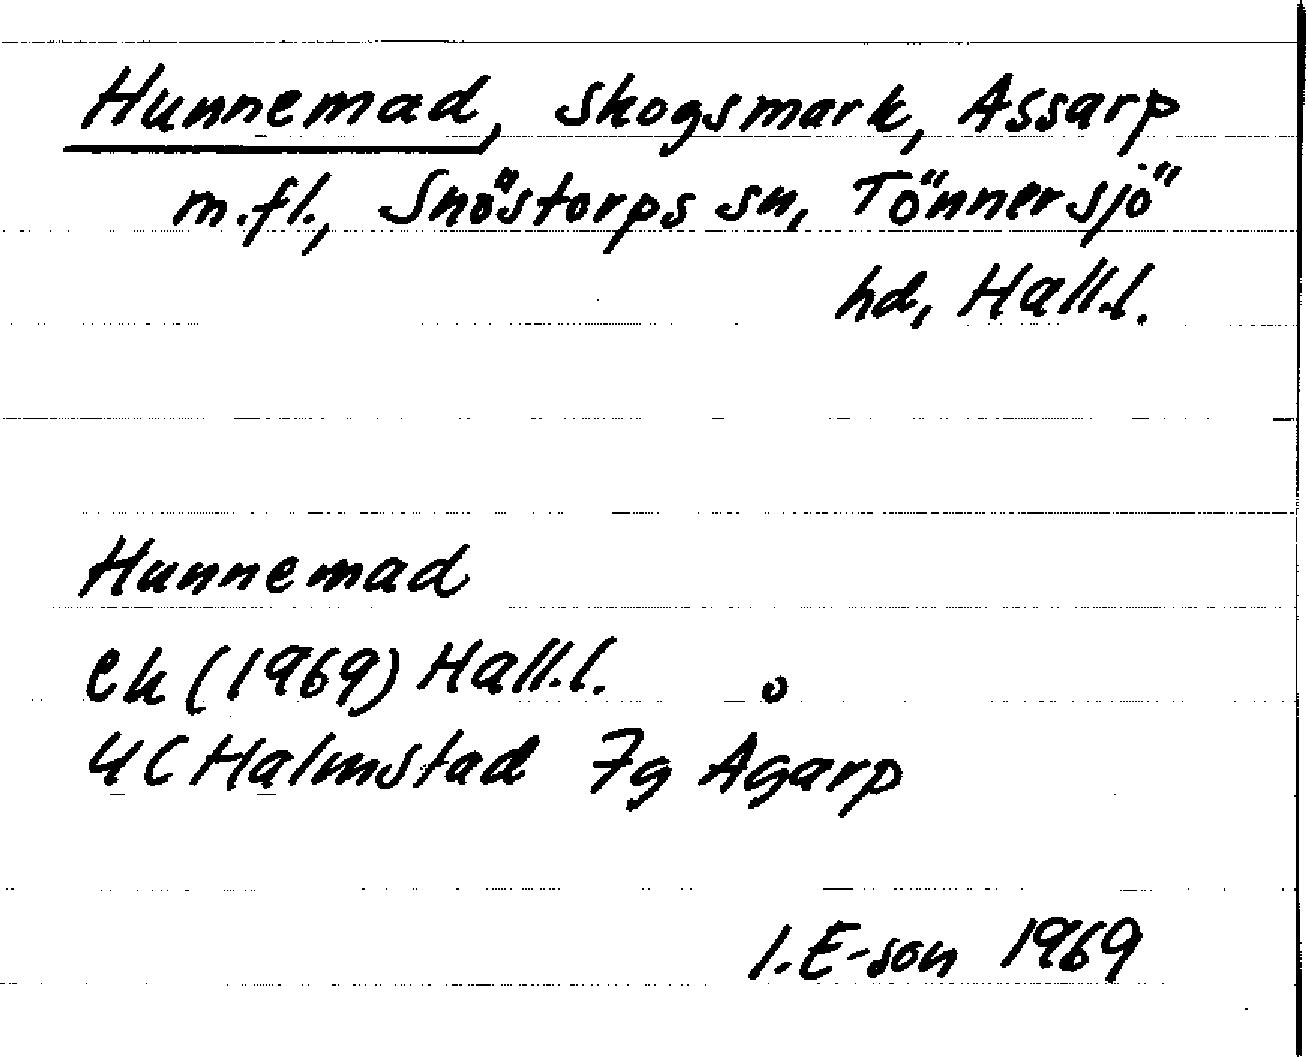 Hunnemad, Skogsmark, Assarp
m.fl., Snöstorps sn, Tönnersjö
hd, Hall.l.
Hunnemad
ek (1969) Hall.l.
4C Halmstad 7g Ågarp
I.E-son 1969